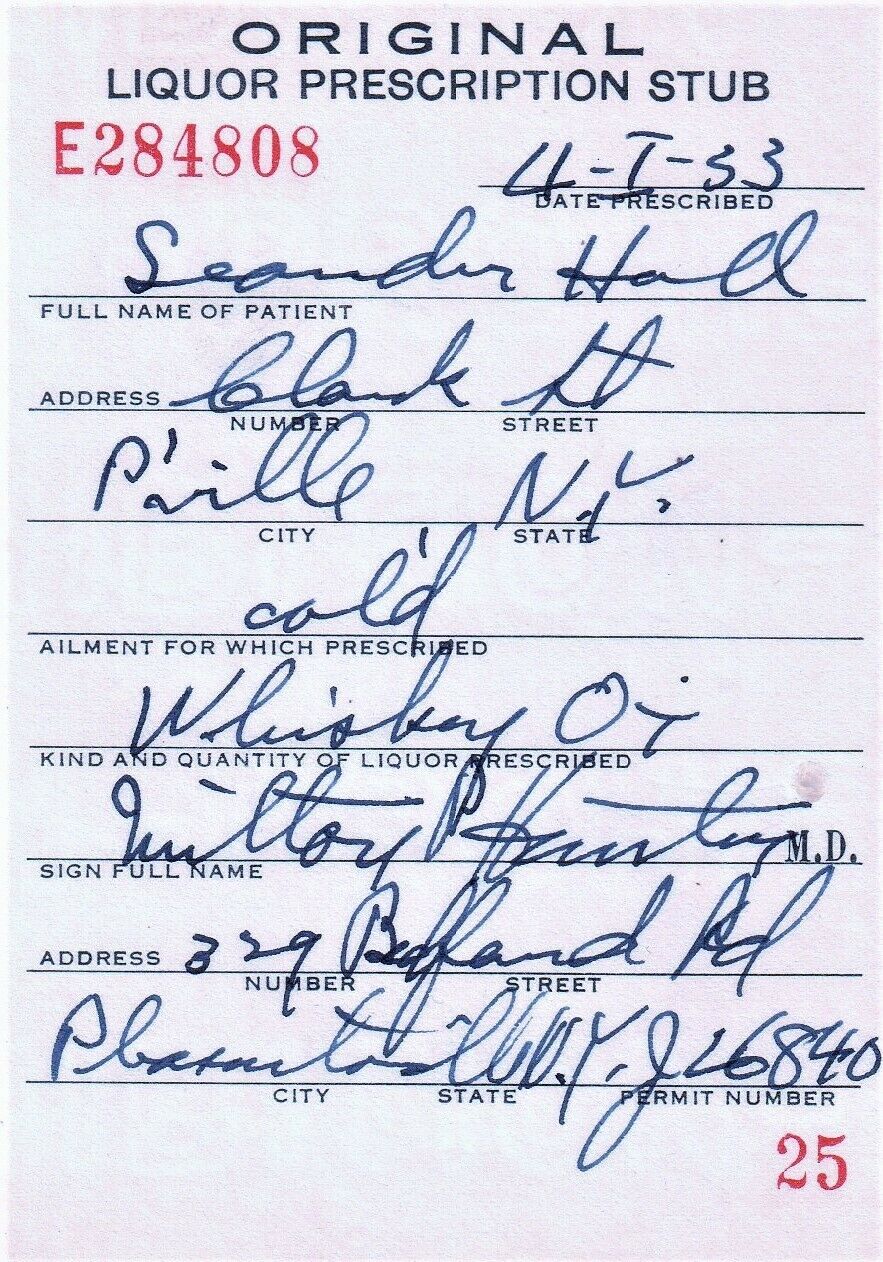 ORIGINAL
LIQUOR PRESCRIPTION STUB
E284808
4-I-33
DATE PRESCRIBED
Leander Hall
FULL NAME OF PATIENT
ADDRESS Clark St
NUMBER STREET
P'ville N.Y.
CITY STATE
cold
AILMENT FOR WHICH PRESCRIBED
Whiskey Oi
KIND AND QUANTITY OF LIQUOR PRESCRIBED
Milton P M.D.
SIGN FULL NAME
ADDRESS 329 Bedford Rd
NUMBER STREET
Pleasantville N.Y. J 26840
CITY STATE PERMIT NUMBER
25